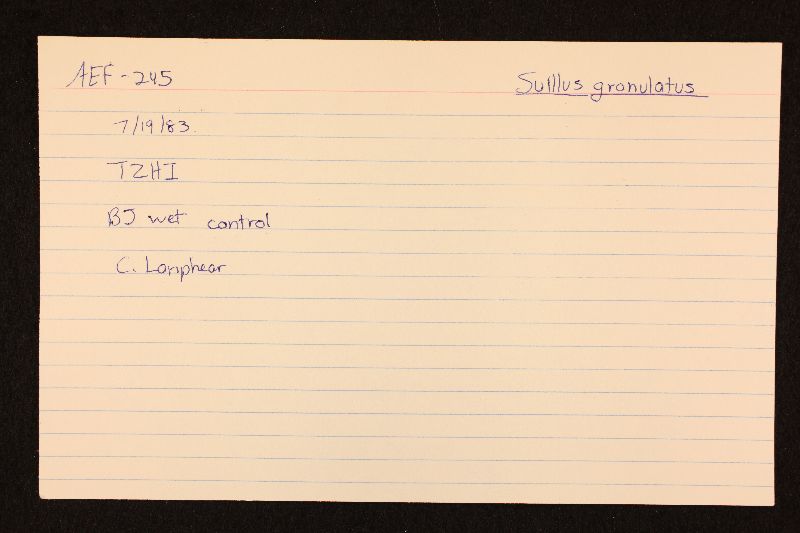 AEF-245
Suillus granulatus
7/19/83
TZHI
BJ wet control
C. Lanphear